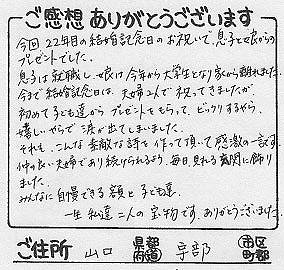 ご感想 ありがとうございます
今回 22年目の結婚記念日のお祝いで、息子と娘からの
プレゼントでした。
息子は就職し、娘は今年から大学生となり家から離れました。
今まで結婚記念日は、夫婦2人で祝ってきましたが
初めて子ども達からプレゼントをもらって、ビックリするやら、
嬉しいやらで涙が出てしまいました。
それも、こんな素敵な詩を作って頂いて感激の一言です。
仲の良い夫婦であり続けられるよう、毎日見れる玄関に飾り
ました。
みんなに自慢できる額と子ども達。
一生私達二人の宝物です。ありがとうございました。
ご住所 山口 県都府道 宇部 市区町郡